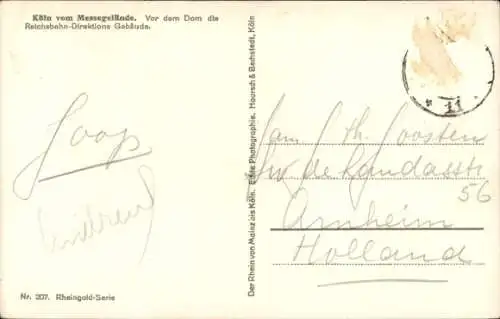 Köln vom Messegelände. Vor dem Dom die
Reichsbahn-Direktions Gebäude.
11
Fam Th. Joosten
de Landasstr
56
Arnheim
Holland
Der Rhein von Mainz bis Köln. Echte Photographie. Hoursch & Bechstedt, Köln
Nr. 207. Rheingold-Serie